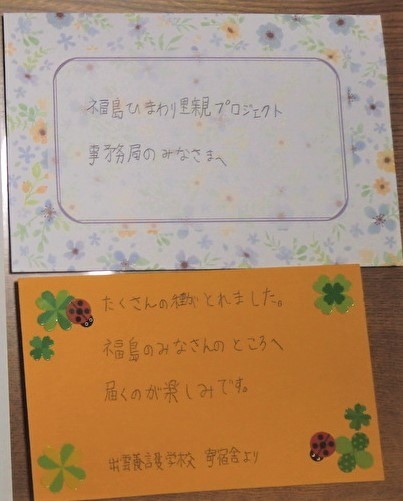 福島ひまわり里親プロジェクト
事務局のみなさまへ
たくさんの種がとれました。
福島のみなさんのところへ
届くのが楽しみです。
出雲養護学校 寄宿舎より